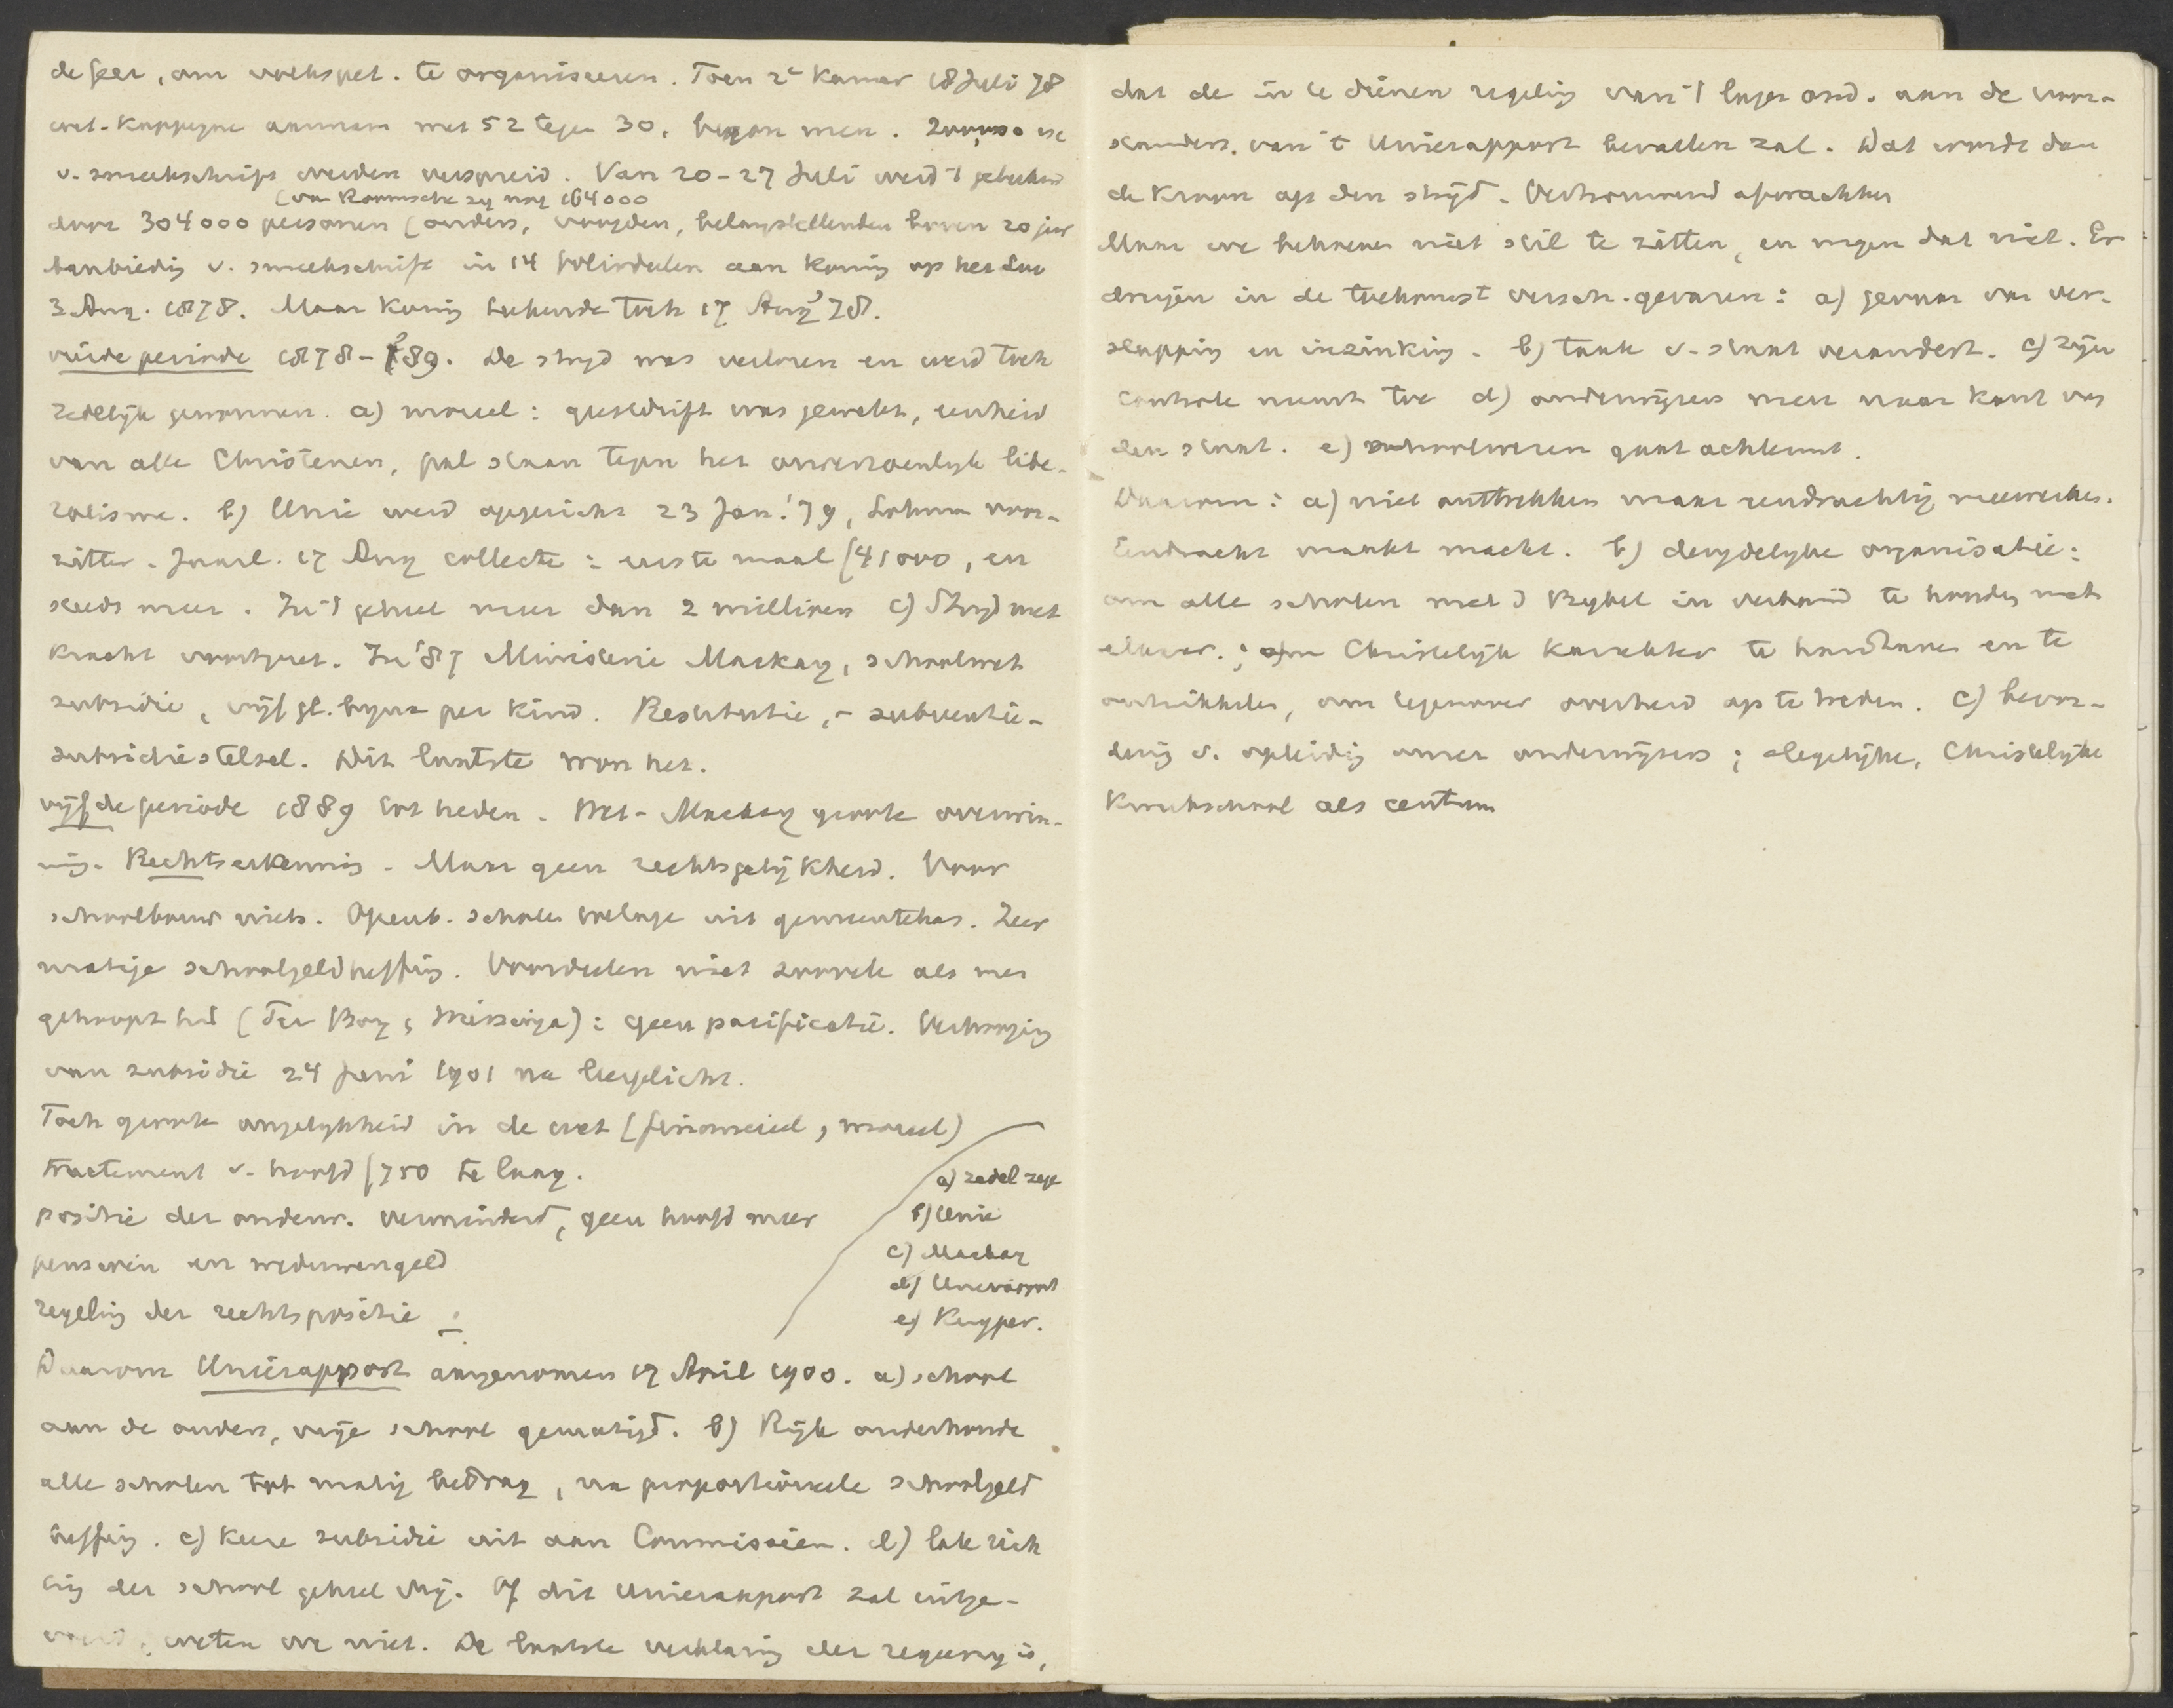 de Geer, om volkspet. te organiseeren. Toen 2e Kamer 18 Juli 78
wet-Kappeyne aannam met 52 tegen 30, begon men.
v. smeekschrift werden verspreid. Van 20-27 Juli werd 't geteekend
(van Roomsche zij nog 164000
door 304000 personen (ouders, voogden, belangstellenden boven 20 jaar
Aanbieding v. smeekschrift in 14 foliodeelen aan Koning op het Loo
3 Aug. 1878. Maar Koning teekende toch 17 Aug '78.
vierde periode 1878-'89. De strijd was verloren en werd toch
zedelijk gewonnen. a) moreel: geestdrift was gewekt, eenheid
van alle Christenen, pal staan tegen het onverzoenlijk libe-
ralisme. b) Unie werd opgericht 23 Jan. '79, Lohman voor-
zitter. Jaarl. 17 Aug collecte: eerste maal f 41000, en
steeds meer. In 't geheel meer dan 2 millioen c) Strijd met
kracht voortgezet. In '87 Ministerie Mackay, schoolwet
subsidie, vijf gl. bijna per kind. Restitutie, - subventie-
subsidiestelsel. Dit laatste won het.
vijfde periode 1889 tot heden. Wet-Mackay groote overwin-
ning. Rechtserkennis. Maar geen rechtsgelijkheid. Voor
schoolbouw niets. Openb. scholen volop uit gemeentekas. Zeer
matige schoolgeldheffing. Voordeelen niet zoovele als men
gehoopt had (Ter Borg, ): geen pacificatie. Verhooging
van subsidie 24 Juni 1901 na leerplicht.
Toch groote ongelijkheid in de wet (financieel, moreel)
tractement v. hoofd f 750 te laag.
positie der onderw. verminderd, geen hoofd meer
pensioen en weduwengeld
regeling der rechtspositie
a) zedel zege
b) Unie
c) Mackay
d) Unierapport
e) Kuyper.
Daarom Unierapport aangenomen 17 April 1900. a) school
aan de ouders, vrije school gewenscht. b) Rijk onderhoude
alle scholen tot matig bedrag, na proportioneele schoolgeld
heffing. c) keere subsidie uit aan Commissien. d) late rich
ting der school geheel vrij. Of dit Unierapport zal uitge-
voerd, weten we niet. De laatste verklaring der regeering is,
dat de in te dienen regeling van 't lager ond. aan de voor-
standers van 't Unierapport bevallen zal. Dat worde dan
de kroon op den strijd. Vertrouwend afwachten
Maar we behoeven niet stil te zitten, en mogen dat niet. Er
dreigen in de toekomst versch. gevaren: a) gevaar van ver-
slapping en inzinking. b) taak v. staat verandert. c) zijn
controle neemt toe d) onderwijzers meer naar kant van
den staat. e) schoolwezen gaat achteruit.
Daarom: a) niet onttrekken maar eendrachtig meewerken.
Eendracht maakt macht. b) deugdelijke organisatie:
om alle scholen met d Bijbel in verband te houden met
elkaar.; om Christelijk karakter te handhaven en te
ontwikkelen, om tegenover overheid op te treden. c) bevor-
dering v. opleiding onzer onderwijzers; degelijke, Christelijke
Kweekschool als centrum